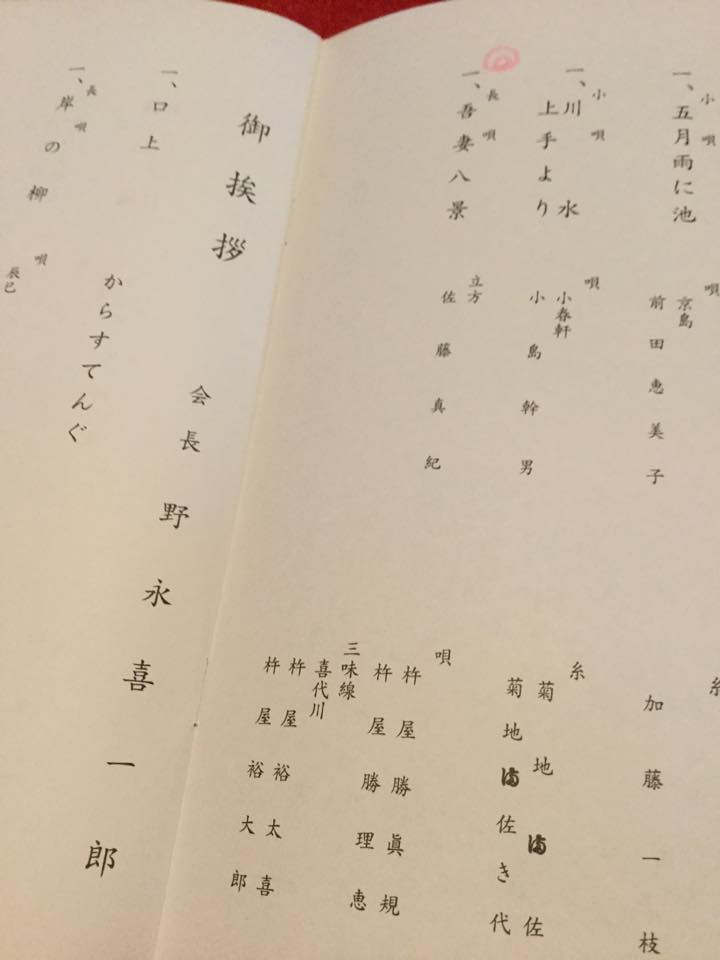 小唄
一、五月雨に池
唄
京島
前田恵美子
糸
加藤一枝
小唄
一、川水
上手より
唄
小春軒
小島幹男
糸
菊地佐
菊地佐き代
長唄
一、吾妻八景
立方
佐藤真紀
唄
杵屋勝眞規
杵屋勝理恵
三味線
喜代川
杵屋裕太喜
杵屋裕大郎
御挨拶
会長 野永喜一郎
一、口上
からすてんぐ
長唄
一、岸の柳
唄
辰巳